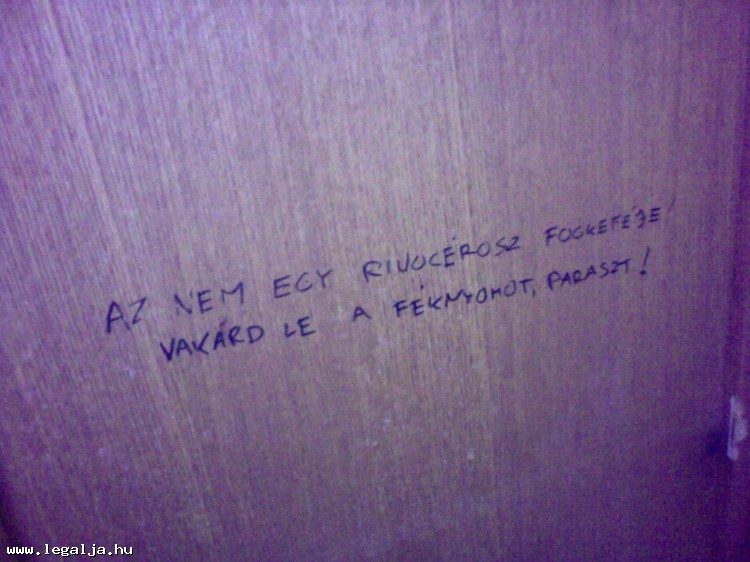 AZ NEM EGY RINOCÉROSZ FOGKEFÉJE!
VAKARD LE A FÉKNYOMOT, PARASZT!
www.legalja.hu